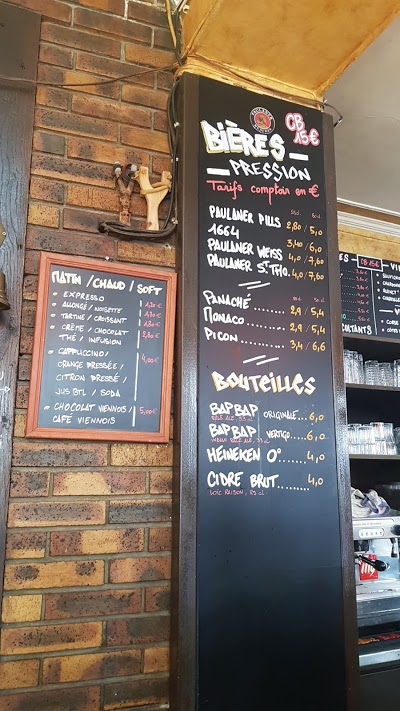 MATIN / CHAUD / SOFT
• EXPRESSO 1,20€
• ALLONGÉ / NOISETTE 1,30€
• TARTINE / CROISSANT 1,30€
• CRÈME / CHOCOLAT 2,80€
THÉ / INFUSION
• CAPPUCCINO / 4,00€
ORANGE PRESSÉE /
CITRON PRESSÉ /
JUS BTL / SODA
• CHOCOLAT VIENNOIS / 5,00€
CAFE VIENNOIS
PAULANER
CB
15€
BIÈRES
PRESSION
Tarifs comptoir en €
25cl. 50cl.
PAULANER PILLS 2,80 / 5,0
1664 3,40 / 6,0
PAULANER WEISS 4,0 / 7,60
PAULANER ST THO. 4,0 / 7,60
25cl. 50cl.
PANACHÉ ........ 2,9 / 5,4
MONACO ........ 2,9 / 5,4
PICON .......... 3,4 / 6,6
BOUTEILLES
BAPBAP ORIGINALE .. 6,0
PALE ALE, 33 cl
BAPBAP VERTIGO .. 6,0
HEINEKEN 0° ....... 4,0
CIDRE BRUT ........ 4,0
LOÏC RAISON,
CB 15€